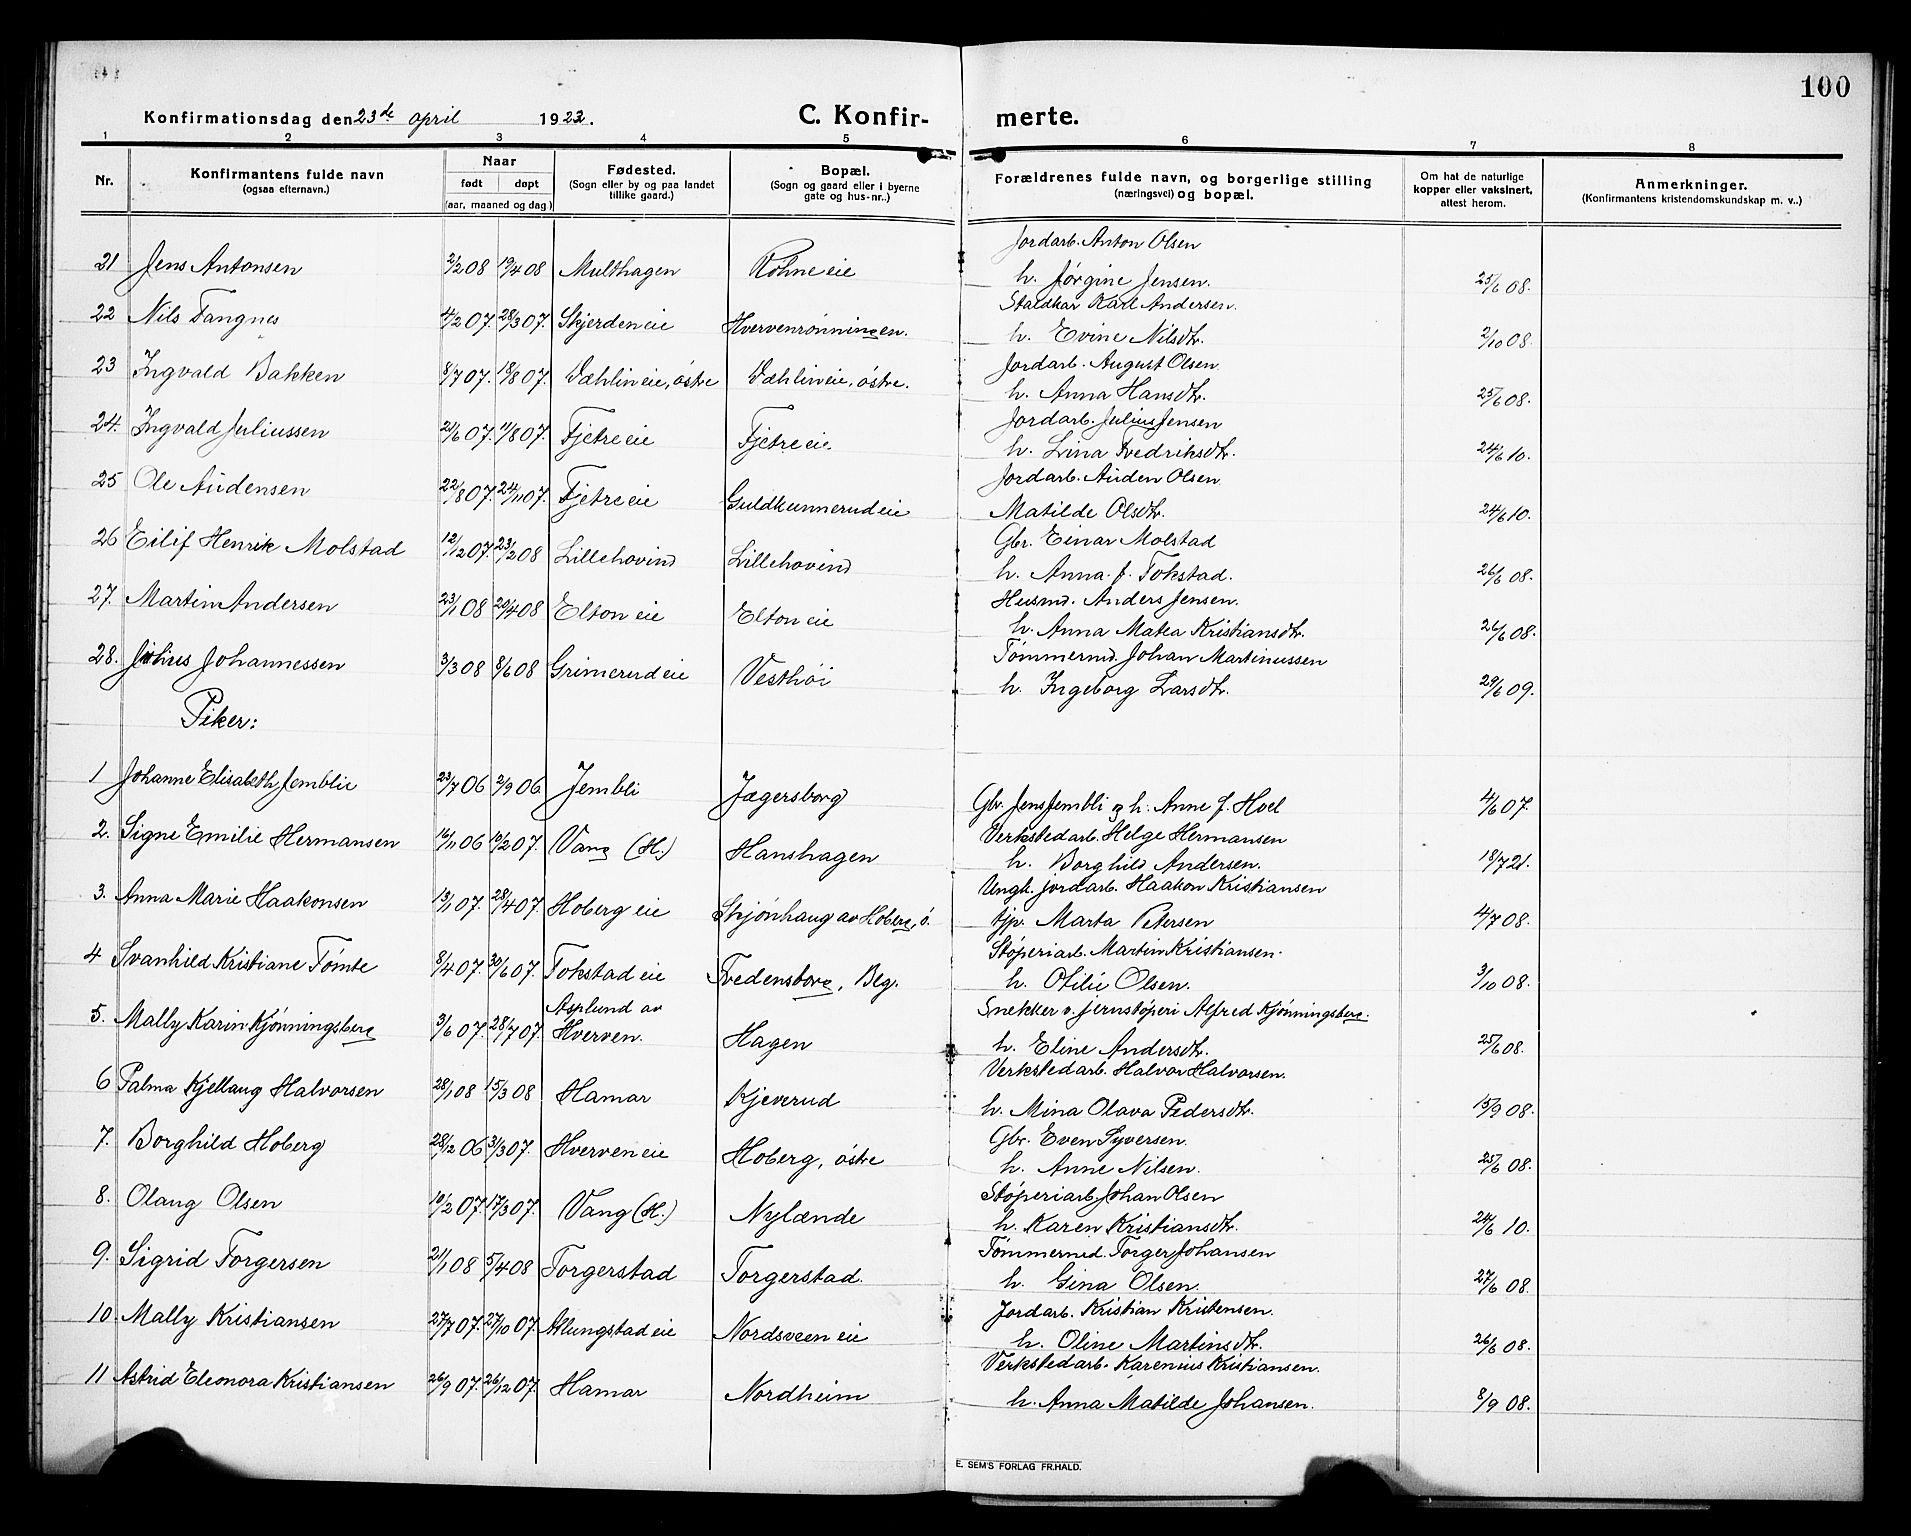 100
Konfirmationsdag den 23de april 1922.
C. Konfirmerte.
1 2 3 4 5 6 7 8
Nr.
Konfirmantens fulde navn
(ogsaa efternavn.)
Naar
født døpt
(aar, maaned og dag)
Fødested.
(Sogn eller by og paa landet
tillike gaard.)
Bopæl.
(Sogn og gaard eller i byerne
gate og hus-nr..)
Forældrenes fulde navn, og borgerlige stilling
(næringsvei) og bopæl.
Om hat de naturlige
kopper eller vaksinert,
attest herom.
Anmerkninger.
(Konfirmantens kristendomskundskap m. v..)
Jordarb. Anton Olsen
21 Jens Antonsen 2/2 08 19/4 08 Multhagen Rohne eie h. Jørgine Jensen. 25/6 08.
Staldkar Karl Andersen.
22 Nils Fangnes 4/2 07. 28/3 07. Skjerden eie Hvervenrønningen. h. Evine Nilsdtr. 2/10 08.
Jordarb. August Olsen
23 Ingvald Bakken 8/7 07. 18/8 07. Dæhlin eie, østre Dæhlin eie, østre. h. Anna Hansdtr. 25/6 08.
Jordarb. Julius Jensen
24. Ingvald Juliussen 21/6 07. 11/8 07. Fjetre eie Fjetre eie. h. Lina Fredriksdtr. 24/6 10.
Jordarb. Auden Olsen
25 Ole Audensen 22/8 07. 24/11 07. Fjetre eie Guldkunnerud eie Matilde Olsdtr. 24/6 10.
Gbr. Einar Molstad
26 Eilif Henrik Molstad 12/12 07. 23/2 08 Lillehovind Lillehovind h. Anna f. Tokstad. 26/6 08.
Husmd. Anders Jensen.
27. Martin Andersen 23/1 08 20/4 08 Elton eie Elton eie h. Anna Matea Kristiansdtr. 26/6 08.
Tømmermd. Johan Martinussen
28. Julius Johannessen 3/3 08 8/6 08 Grimerud eie Vesthøi h. Ingeborg Larsdtr. 29/6 09.
Piker:
1 Johanne Elisabeth Jemblie 23/7 06 2/9 06 Jembli Jægersborg Gbr. Jens Jembli og h. Anne f. Hoel 4/6 07.
Verkstedarb. Helge Hermansen
2. Signe Emilie Hermansen 16/11 06 19/2 07. Vang (H.) Hanshagen h. Borghild Andersen. 18/7 21.
Ungk. jordarb. Haakon Kristiansen
3. Anna Marie Haakonsen 13/1 07. 28/4 07. Hoberg eie Skjønhaug av Hoberg, ø. tjp. Marta Petersen 4/7 08.
Støperiarb. Martin Kristiansen.
4 Svanhild Kristiane Tømte 8/4 07. 30/6 07. Tokstad eie Fredensborg, Blg. h. Otilie Olsen. 3/10 08.
Snekker v. jernstøperi Alfred Kjønningsberg.
5. Mally Karin Kjønningsberg 3/6 07. 28/7 07. Asplund av Hverven. Hagen h. Eline Andersdtr. 25/6 08.
Verkstedarb. Halvor Halvorsen.
6 Palma Kjellaug Halvorsen 28/1 08 15/3 08 Hamar Kjeverud h. Mina Olava Pedersdtr. 15/9 08.
Gbr. Even Syversen.
7. Borghild Hoberg 28/12 06 31/3 07. Hverven eie Hoberg, østre h. Anne Nilsen. 25/6 08.
Støperiarb. Johan Olsen
8. Olaug Olsen 10/2 07. 17/3 07. Vang (H.) Nylænde h. Karen Kristiansdtr. 24/6 10.
Tømmermd. Torger Johansen
9. Sigrid Torgersen 21/1 08 5/4 08 Torgerstad Torgerstad. h. Gina Olsen. 27/6 08.
Jordarb. Kristian Kristensen.
10. Mally Kristiansen 27/7 07. 27/10 07. Atlungstad eie Nordsveen eie h. Oline Martinsdtr. 26/6 08.
Verkstedarb. Karenius Kristiansen.
11 Astrid Eleonora Kristiansen 26/9 07. 26/12 07. Hamar Nordheim h. Anna Matilde Johansen. 8/9 08.
E. SEM'S FORLAG FR.HALD.